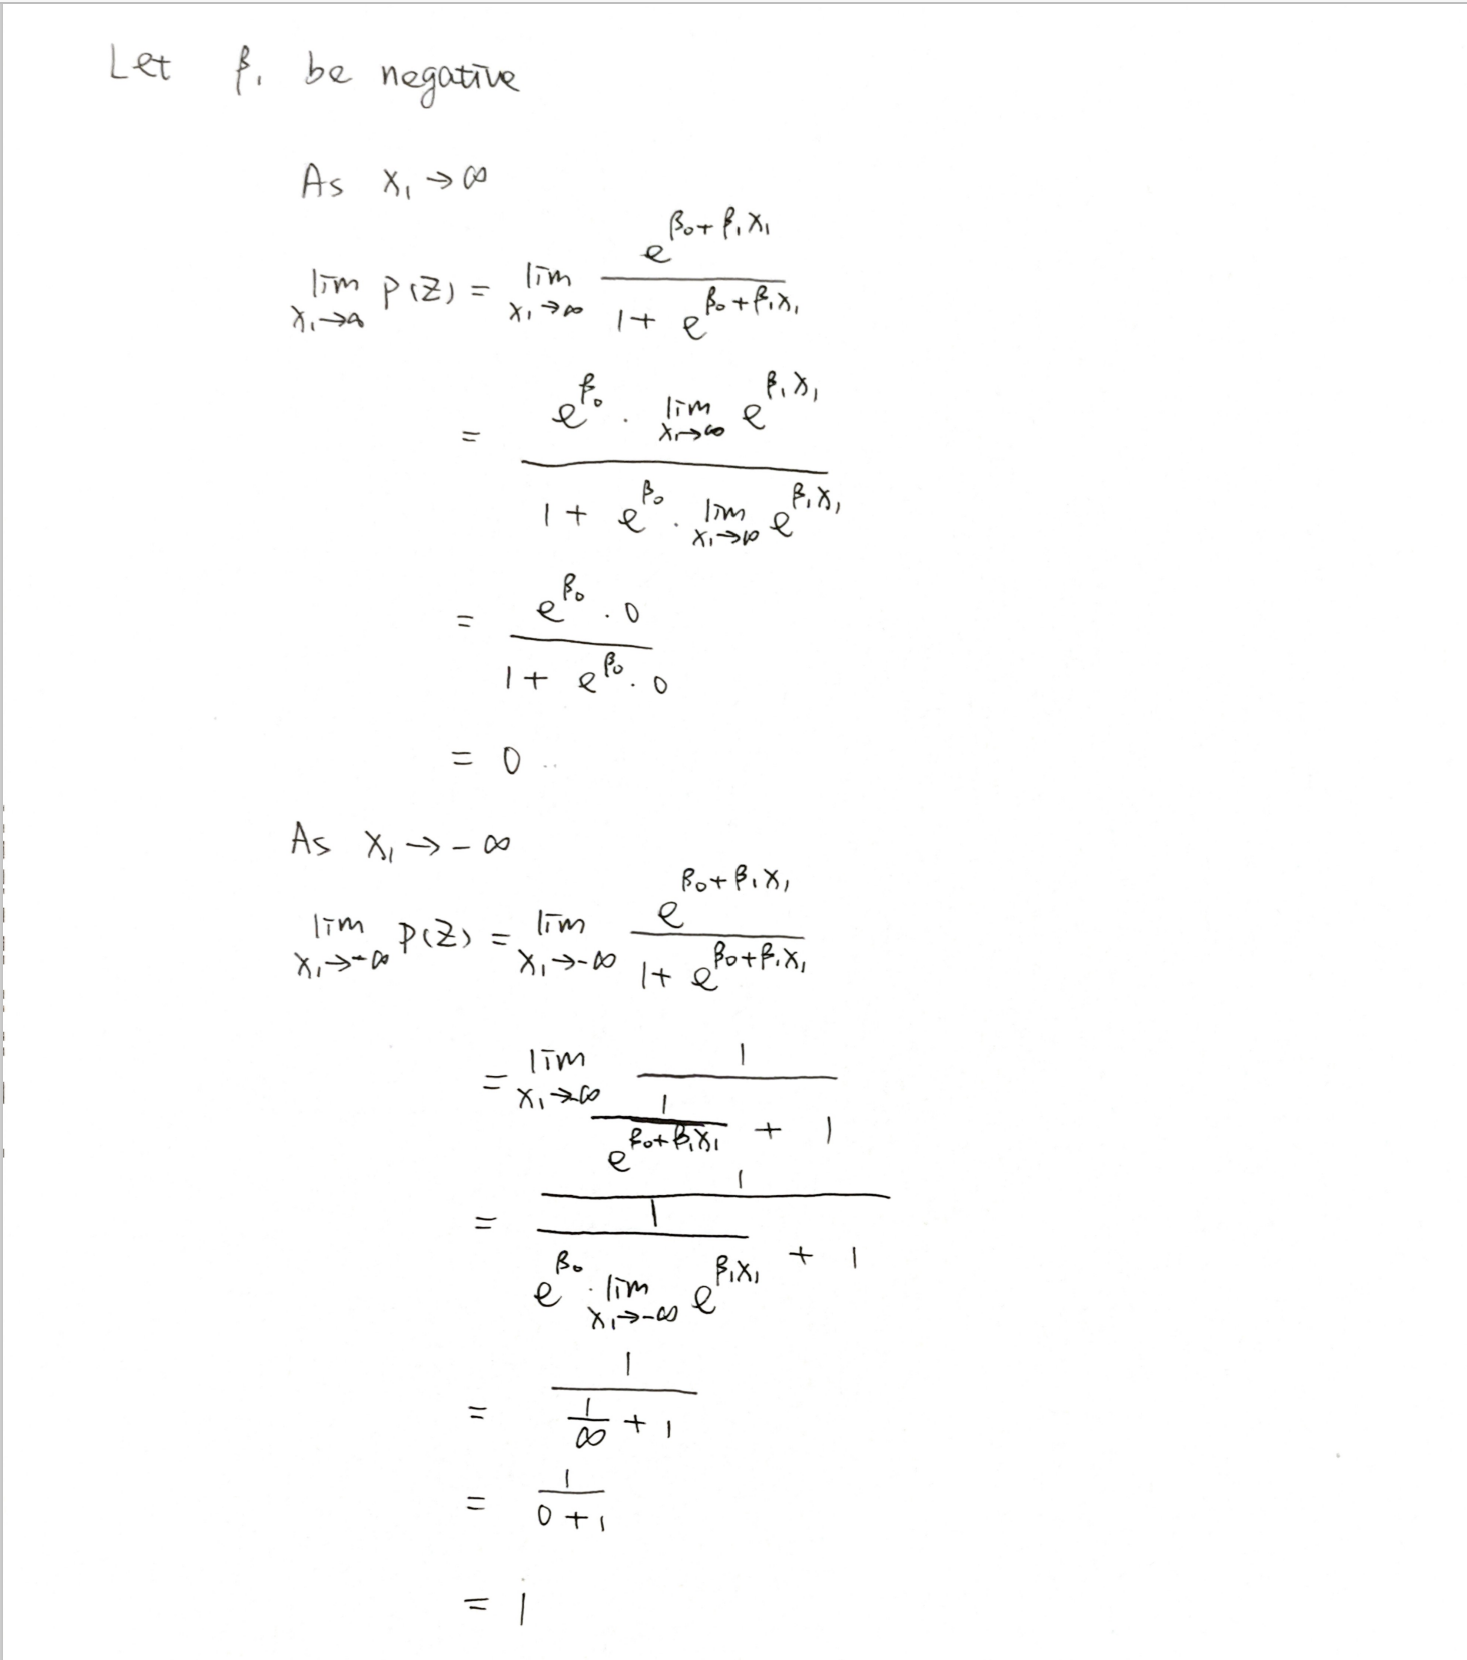 Let β₁ be negative
As X₁ → ∞
lim_{X₁→∞} P(Z) = lim_{X₁→∞} e^{β₀+β₁X₁} / (1 + e^{β₀+β₁X₁})
= (e^{β₀} · lim_{X₁→∞} e^{β₁X₁}) / (1 + e^{β₀} · lim_{X₁→∞} e^{β₁X₁})
= (e^{β₀} · 0) / (1 + e^{β₀} · 0)
= 0
As X₁ → -∞
lim_{X₁→-∞} P(Z) = lim_{X₁→-∞} e^{β₀+β₁X₁} / (1 + e^{β₀+β₁X₁})
= lim_{X₁→∞} 1 / (1 / e^{β₀+β₁X₁} + 1)
= 1 / (1 / (e^{β₀} · lim_{X₁→-∞} e^{β₁X₁}) + 1)
= 1 / (1/∞ + 1)
= 1 / (0 + 1)
= 1